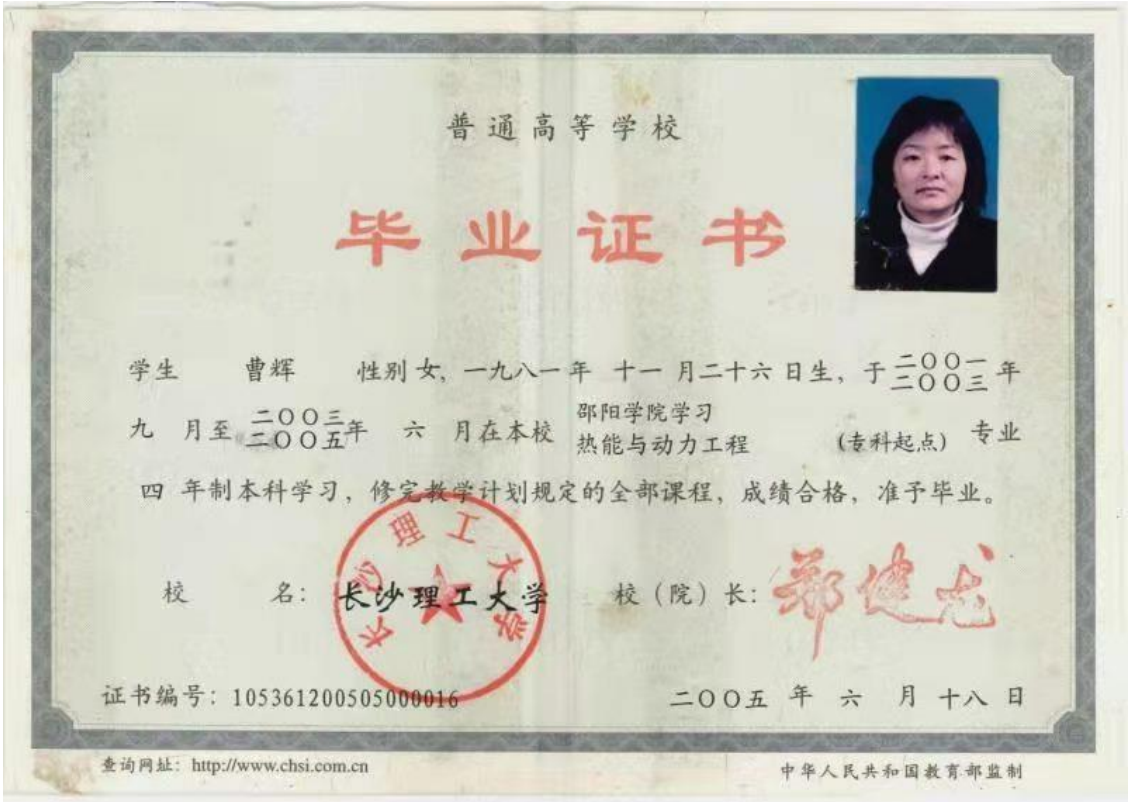 普通高等学校
毕业证书
学生 曹辉 性别 女, 一九八一年 十一 月二十六 日生, 于 二〇〇一 年
二〇〇三
九 月至 二〇〇三 年 六 月在本校 邵阳学院学习 (专科起点) 专业
二〇〇五 热能与动力工程
四 年制本科学习, 修完教学计划规定的全部课程, 成绩合格, 准予毕业。
校 名: 长沙理工大学 校(院)长: 郑健龙
长沙理工大学
证书编号: 105361200505000016 二〇〇五 年 六 月 十八 日
查询网址: http://www.chsi.com.cn 中华人民共和国教育部监制